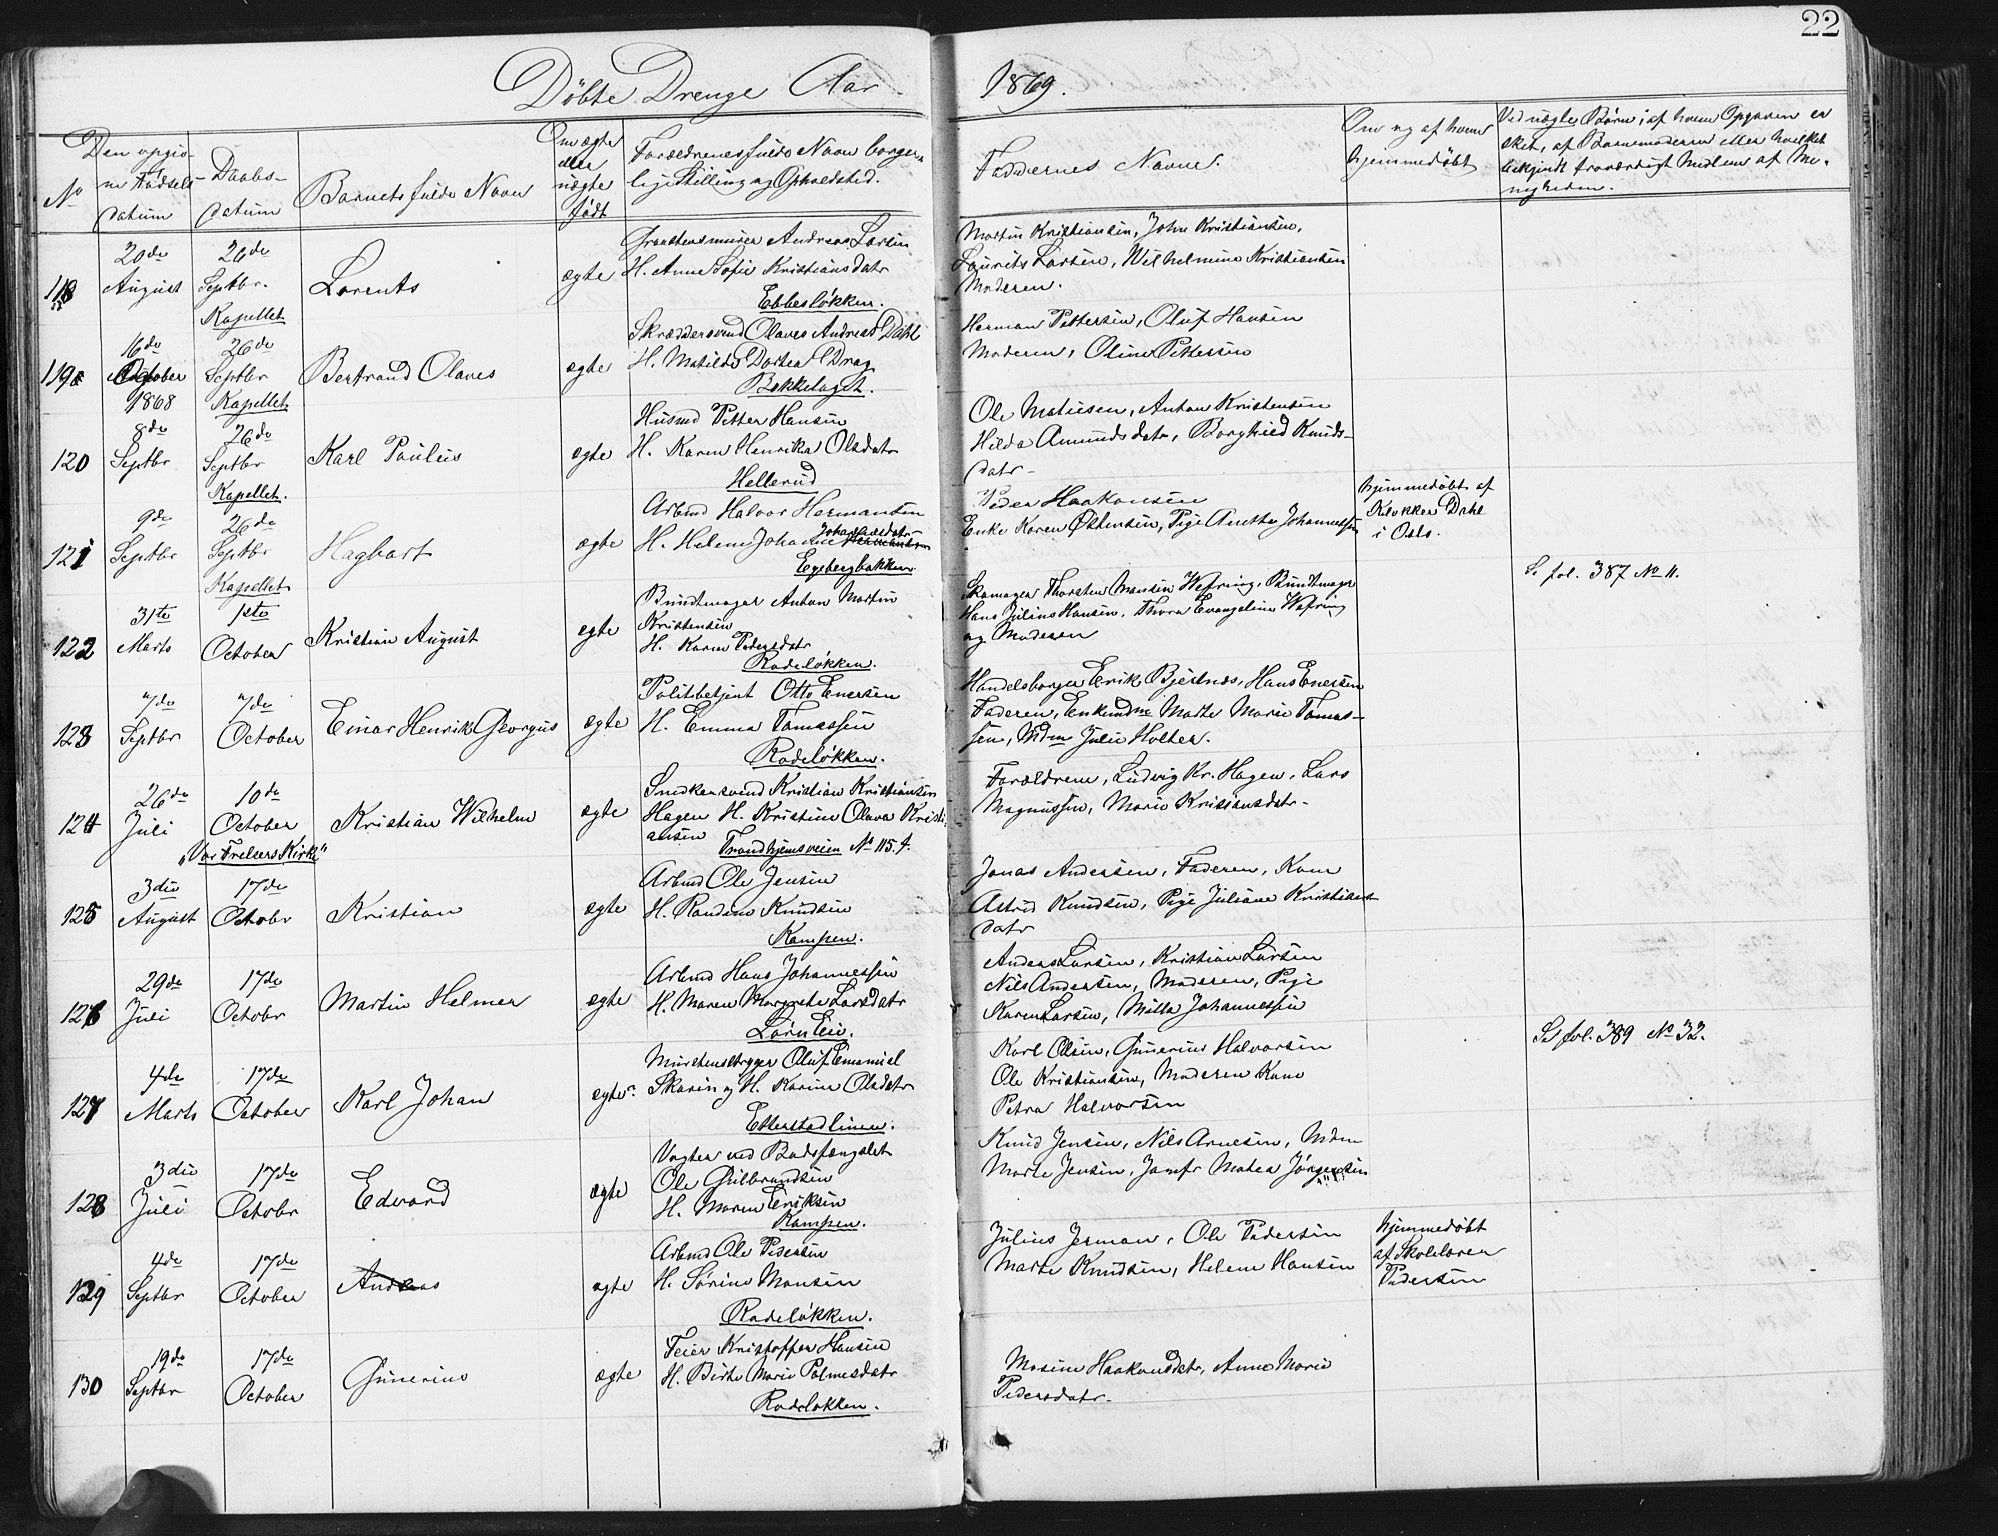 22
Döbte Drenge Aar 1869.
No
Den opgiv-
ne Födsels-
datum
Daabs-
datum
Barnets fulde Navn
Om ægte
eller
uægte
födt
Forældrenes fulde Navn borger-
lige Stilling og Opholdsted.
Faddernes Navne.
Om og af hvem
hjemmedöbt
Ved uægte Börn; af hvem Opgaven er
sket, af Barnemoderen eller hvilket
bekjendt troværdigt Medlem af Me-
nigheden.
118
20de
August
26de
Septbr.
Kapellet
Lorents
ægte
Andreas Larsen
H. Anne Sofie Kristiansdatr
Ebbesløkken.
Martin Kristiansen, John Kristiansen,
Laurits Larsen, Wilhelmine Kristiansen
Moderen.
119
16de
October
1868
26de
Septbr
Kapellet
Bertrand Olaves
ægte
Skræddersvend Olaves Andreas Dahl
H. Matilde Dortea Drag
Bækkelaget.
Herman Pettersen, Oluf Hansen
Moderen, Oline Pettersen
120
8de
Septbr
26de
Septbr
Kapellet.
Karl Paulus
ægte
Husmd Petter Hansen
H. Karen Henrikka Olsdatr
Hellerud
Ole Matiesen, Anton Kristensen
Hilda Amundsdatr, Borghild Knuds-
datr
121
9de
Septbr
26de
Septbr
Kapellet
Hagbart
ægte
Arbmd Halvor Hermansen
H. Helene Johanne Johannesdatr
Egebergbakken
Peder Haakonsen
Enke Karen Østensen, Pige Anette Johannessen
hjemmedöbt af
Klokker Dahl
i Oslo.
122
31te
Marts
1ste
October
Kristian August
ægte
Bundtmager Anton Martin
Kristensen
H. Karen Pedersdatr
Rodeløkken.
Skomager Thorsten Monsen Wefring, Bundtmager
Hans Julius Hansen, Thora Evangeline Wefring
og Moderen
S. fol. 387 No 11.
123
7de
Septbr
7de
October
Einar Henrik Georgus
ægte
Politibetjent Otto Enersen
H. Emma Tomassen
Rodeløkken.
Handelsborger Erik Bjertnæs, Hans Enersen
Faderen, Enkemdne Marte Marie Tomas-
sen, Mdm Julie Holter.
124
26de
Juli
10de
October
"Vor Frelsers Kirke"
Kristian Wilhelm
ægte
Snedkersvend Kristian Kristiansen
Hagen H. Kristine Olava Kristi-
ansen
Trondhjemsveien No 115.f.
Forældrene, Ludvig Kr. Hagen, Lars
Magnussen, Marie Kristiansdatr
125
3die
August
17de
Octobr
Kristian
ægte
Arbmd Ole Jensen
H. Randine Knudsen
Kampen.
Jonas Andersen, Faderen, Kone
Astrid Knudsen, Pige Juliane Kristians
datr
126
29de
Juli
17de
Octobr
Martin Helmer
ægte
Arbmd Hans Johannessen
H. Maren Margrete Larsdatr
Anders Larsen, Kristian Larsen
Nils Andersen, Moderen, Pige
Karen Larsen, Milla Johannessen
127
4de
Marts
17de
October
Karl Johan
ægte
Murstensstryger Oluf Emanuel
Skarin og H. Karine Olsdatr
Etterstadlinien.
Karl Olsen, Gunerius Halvorsen
Ole Kristiansen, Moderen Kone
Petra Halvorsen
Se fol. 389 No 32.
128
3die
Juli
17de
Octobr
Edvard
ægte
Vogter ved Bodsfængslet
Ole Gulbrandsen
H. Maren Eriksen
Kampen.
Knud Jensen, Nils Arnesen, Mdm
Marte Jensen, Jomfr Matea Jörgensen
129
4de
Septbr
17de
October
Andreas
ægte
Arbmd Ole Pedersen
H. Sörine Monsen
Rodeløkken.
Julius Jerman, Ole Pedersen
Marte Knudsen, Helene Hansen
hjemmedöbt
af Skolelærer
Pedersen
130
19de
Septbr
17de
October
Gunerius
ægte
Feier Kristoffer Hansen
H. Birte Marie Palmesdatr
Rodeløkken.
Mosine Haakonsdatr, Anne Marie
Pedersdatr.